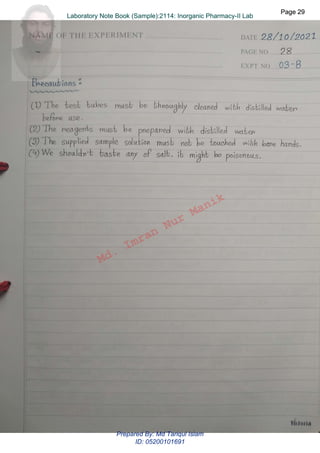 Laboratory Note Book (Sample):2114: Inorganic Pharmacy-II Lab
Page 29
NAME OF THE EXPERIMENT
DATE 28/10/2021
PAGE NO 28
EXPT. NO. 03-B
Precautions:
(1) The test tubes must be throughly cleaned with distilled water
before use.
(2) The reagents must be prepared with distilled water
(3) The supplied sample solution must not be touched with bare hands.
(4) We shouldn't taste any of salt. it might be poisonous.
Md. Imran Nur Manik
Victoria
Prepared By: Md Tariqul Islam
ID: 05200101691